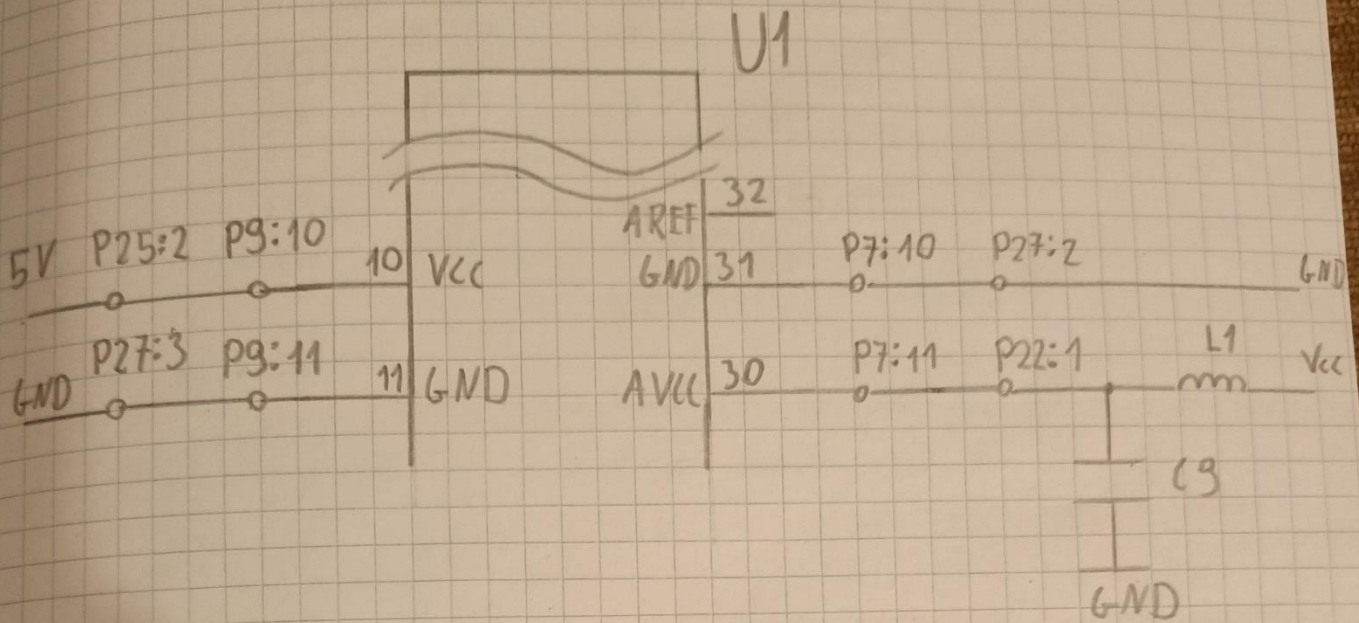 U1
32
AREF
5V P25:2 P9:10 10 VCC GND 31 P7:10 P27:2 GND
GND P27:3 P9:11 11 GND AVCC 30 P7:11 P22:1 L1 Vcc
C9
GND